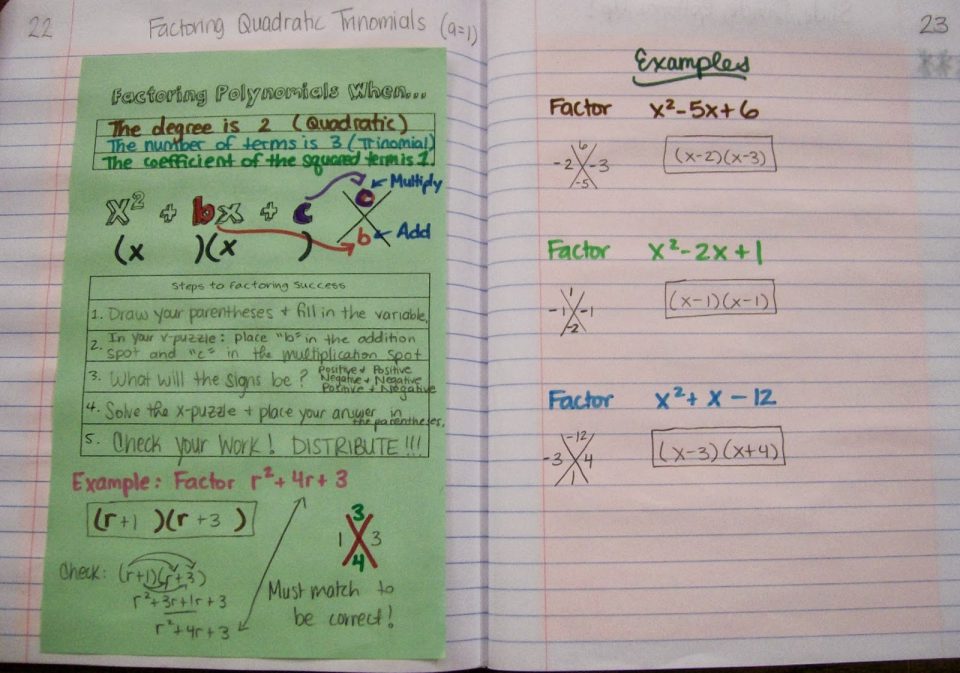 22
Factoring Quadratic Trinomials (a=1)
Factoring Polynomials When...
The degree is 2 (Quadratic)
The number of terms is 3 (Trinomial)
The coefficient of the squared term is 1.
Multiply
x² + bx + c
c
(x )(x )
b
Add
Steps to Factoring Success
1. Draw your parentheses + fill in the variable.
2. In your x-puzzle: place "b" in the addition
spot and "c" in the multiplication spot
3. What will the signs be?
Positive + Positive
Negative + Negative
Positive + Negative
4. Solve the x-puzzle + place your answer in
the parentheses.
5. Check your work! DISTRIBUTE!!!
Example: Factor r² + 4r + 3
(r +1 )(r +3 )
3
1 3
4
Check: (r+1)(r+3)
r²+3r+1r+3
r²+4r+3
Must match to
be correct!
23
Examples
Factor x²-5x+6
6
-2 -3
-5
(x-2)(x-3)
Factor x²-2x+1
1
-1 -1
-2
(x-1)(x-1)
Factor x²+x-12
-12
-3 4
1
(x-3)(x+4)